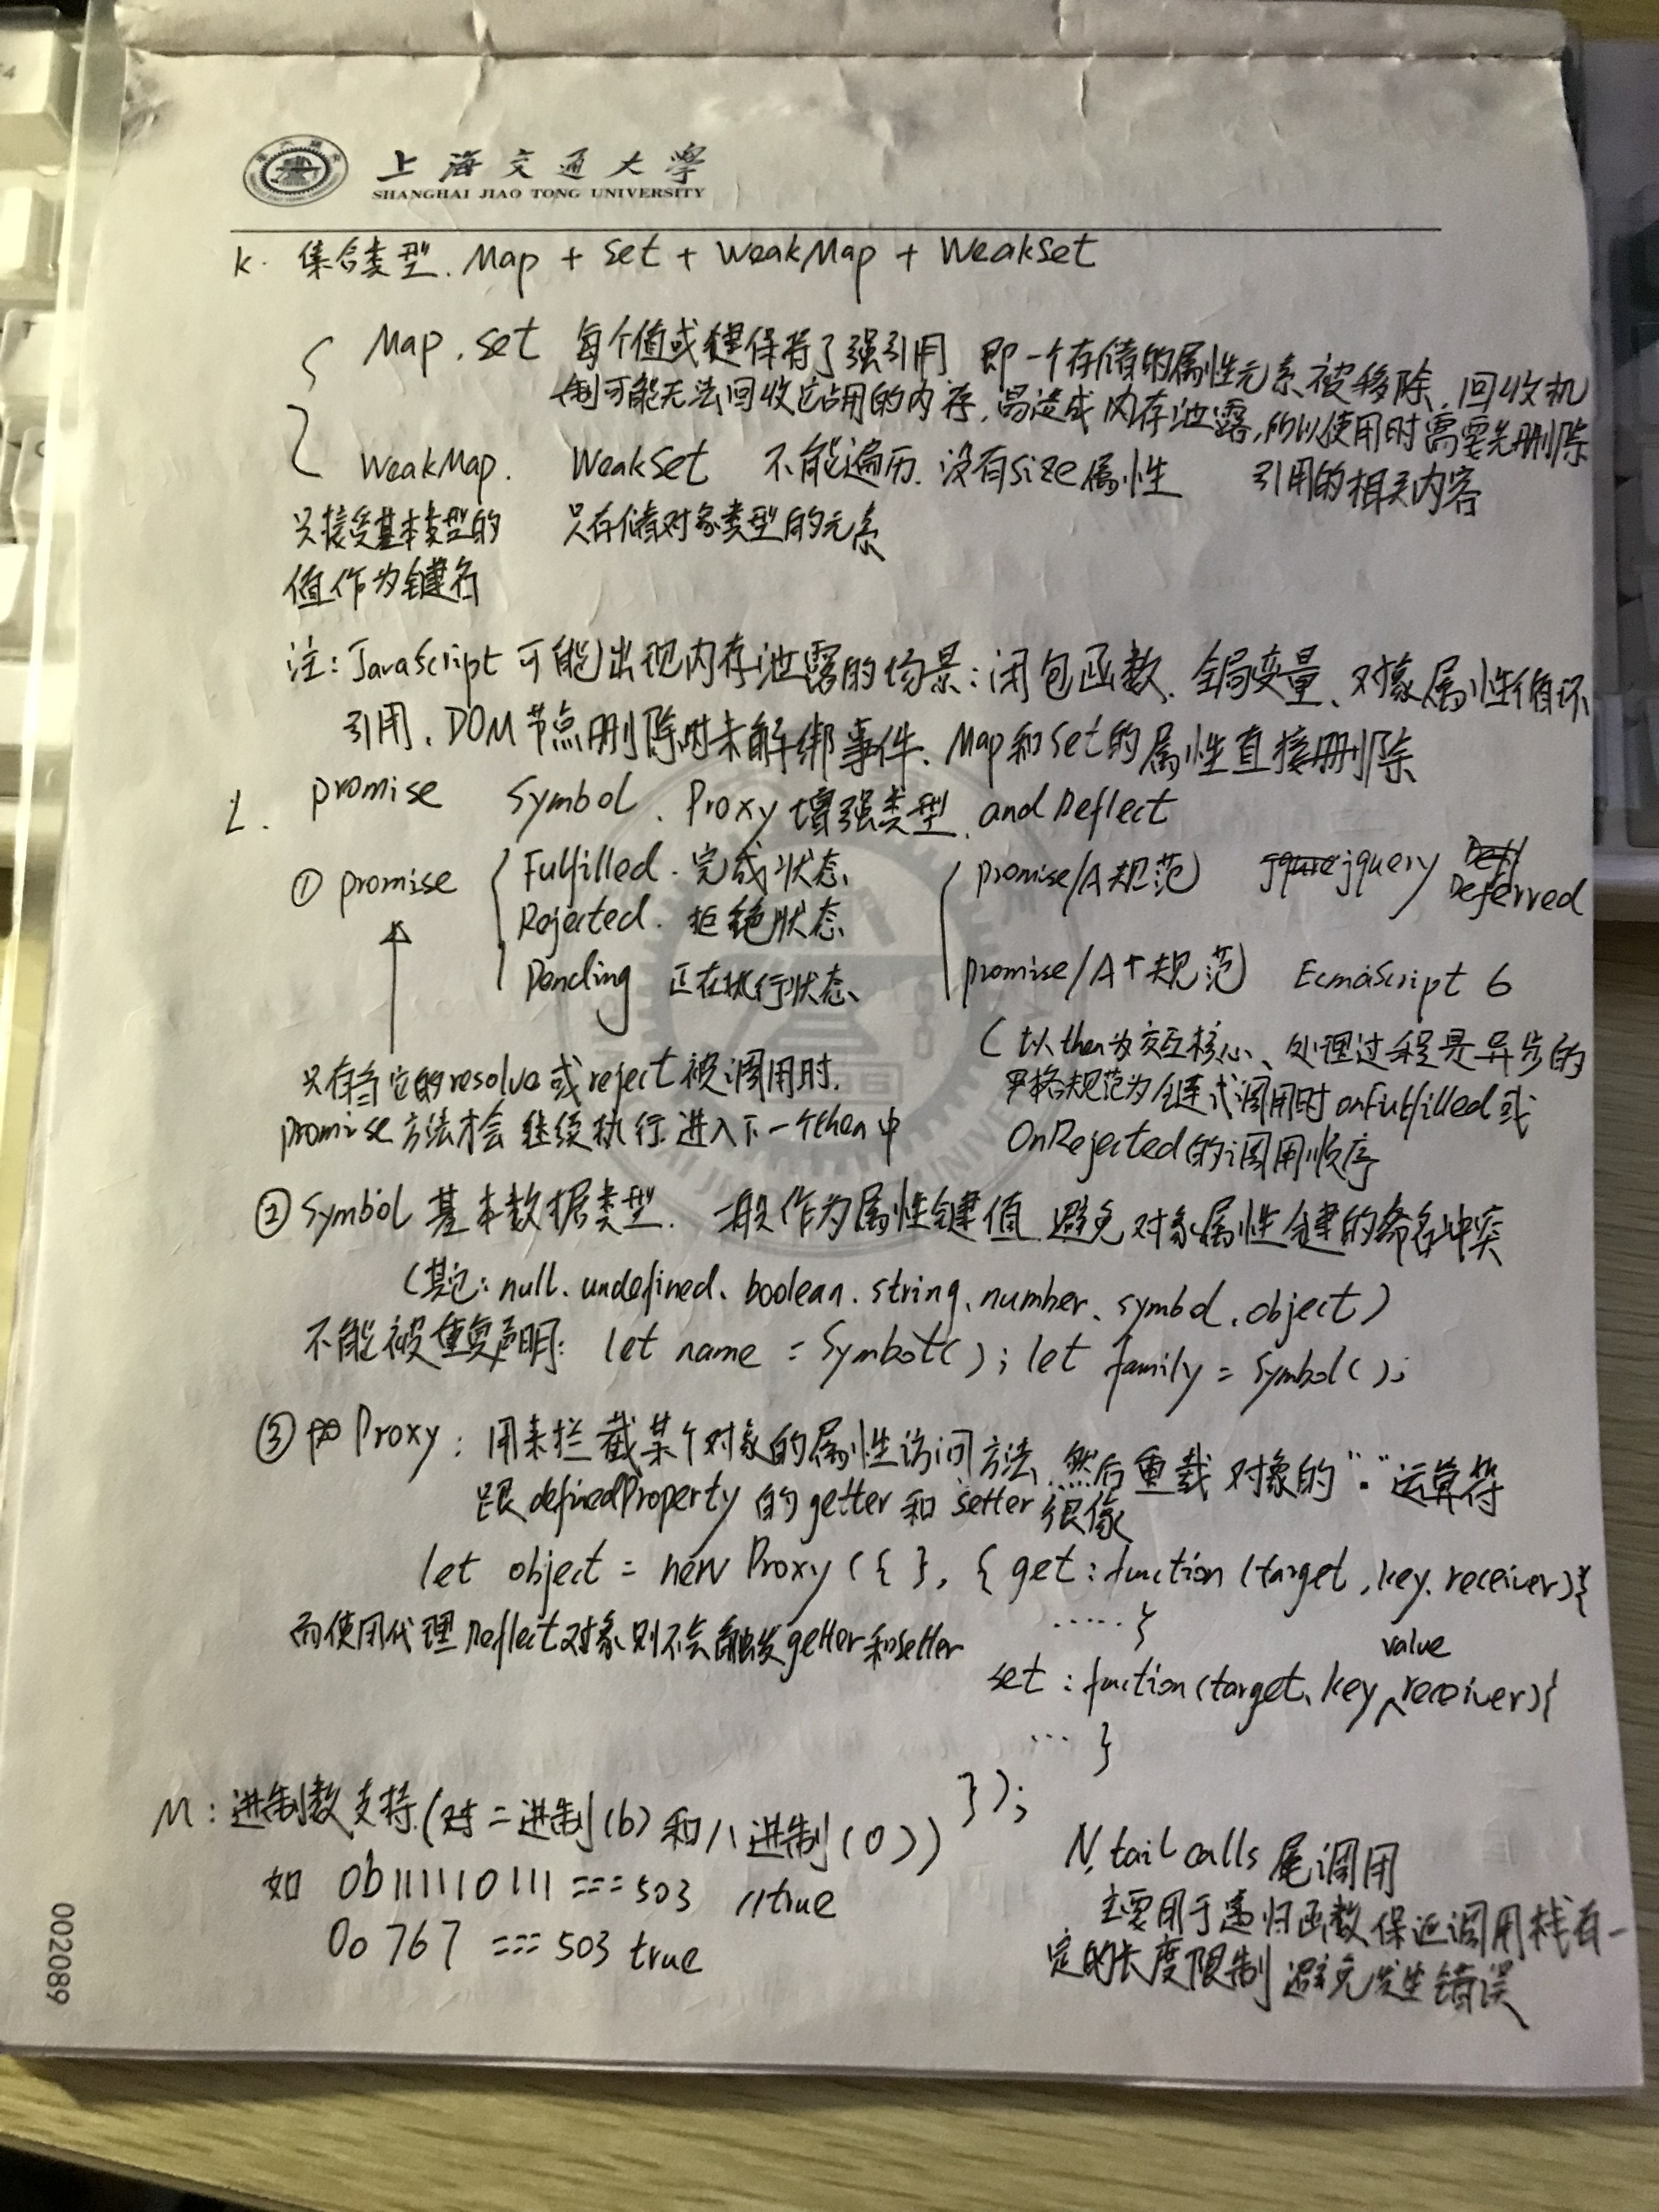 上海交通大學
SHANGHAI JIAO TONG UNIVERSITY
K. 集合类型. Map + Set + WeakMap + WeakSet
Map. Set 每个值或键保持了强引用 即一个存储的属性元素被移除, 回收机
制可能无法回收它占用的内存, 易造成内存泄露, 所以使用时需要先删除
引用的相关内容
WeakMap. WeakSet 不能遍历. 没有size属性
只接受基本类型的 只存储对象类型的元素
值作为键名
注: JavaScript 可能出现内存泄露的场景: 闭包函数、全局变量、对象属性循环
引用、DOM节点删除时未解绑事件、Map和Set的属性直接删除
L. promise Symbol. Proxy 增强类型. and Reflect
① promise
Fulfilled. 完成状态
Rejected. 拒绝状态
Pending 正在执行状态
promise/A规范) jquery Deferred
promise/A+规范) EcmaScript 6
(以then为交互核心、处理过程是异步的
严格规范为链式调用时onFulfilled或
OnRejected的调用顺序
只有当它的resolve或reject被调用时.
promise方法才会继续执行 进入下一个then中
② Symbol 基本数据类型. 一般作为属性键值 避免对象属性键的命名冲突
(其它: null. undefined、boolean. string、number、symbol. object)
不能被重复声明: let name = Symbol(); let family = Symbol();
③ Proxy: 用来拦截某个对象的属性访问方法, 然后重载对象的"."运算符
跟definedProperty的getter和setter很像
let object = new Proxy({ }, { get: function(target, key. receiver){
..... }
而使用代理Reflect对象则不会触发getter和setter
set: fuction(target、key, value receiver){
... }
});
M: 进制数支持(对二进制(b)和八进制(O))
如 0b111110111 === 503 //true
0o767 === 503 true
N, tail calls 尾调用
主要用于递归函数保证调用栈有一
定的长度限制 避免发生错误
002089